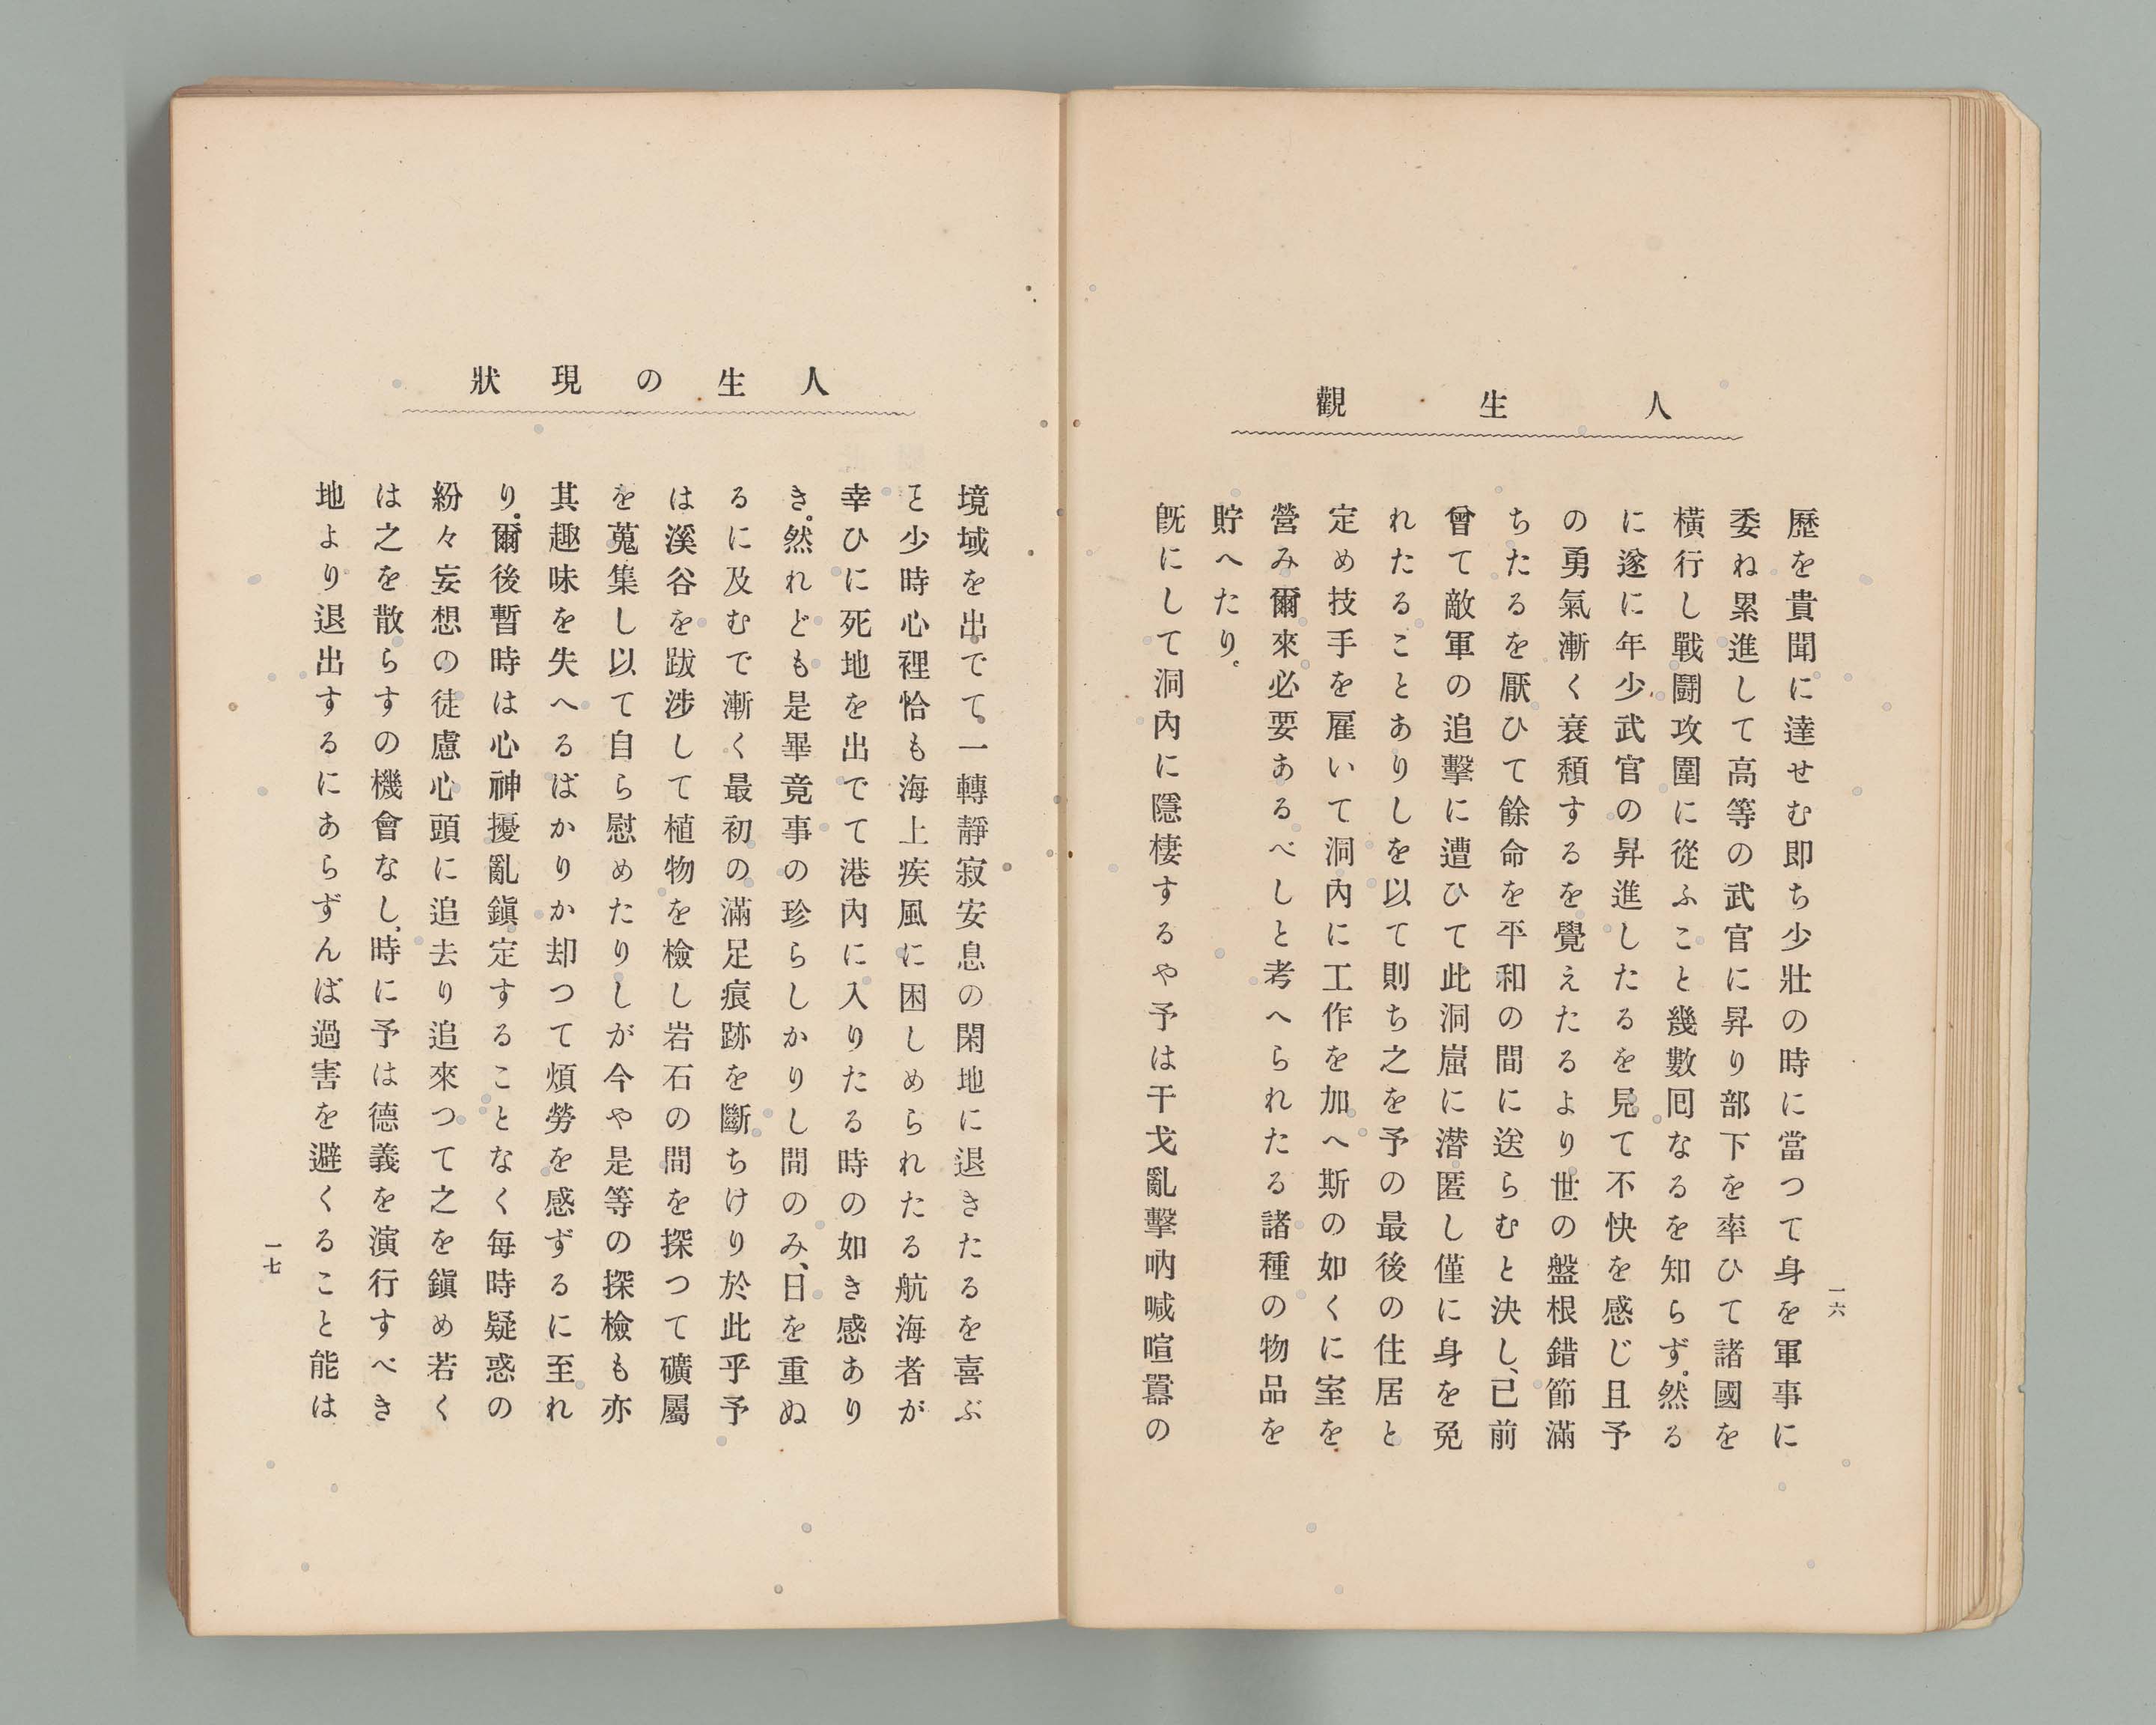 人生觀
歷を貴聞に達せむ即ち少壯の時に當つて身を軍事に
委ね累進して高等の武官に昇り部下を率ひて諸國を
橫行し戰鬪攻圍に從ふこと幾數囘なるを知らず。然る
に遂に年少武官の昇進したるを見て不快を感じ且予
の勇氣漸く衰頽するを覺えたるより世の盤根錯節滿
ちたるを厭ひて餘命を平和の間に送らむと決し、已前
曾て敵軍の追擊に遭ひて此洞窟に潛匿し僅に身を免
れたることありしを以て則ち之を予の最後の住居と
定め技手を雇いて洞內に工作を加へ斯の如くに室を
營み爾來必要あるべしと考へられたる諸種の物品を
貯へたり。
旣にして洞內に隱棲するや予は干戈亂擊吶喊喧囂の
一六
人生の現狀
境域を出でて、一轉靜寂安息の閑地に退きたるを喜ぶ
と少時心裡恰も海上疾風に困しめられたる航海者が
幸ひに死地を出でて港內に入りたる時の如き感あり
き。然れども是畢竟事の珍らしかりし間のみ、日を重ぬ
るに及むで漸く最初の滿足痕跡を斷ちけり於此乎予
は溪谷を跋涉して植物を檢し岩石の間を探つて礦屬
を蒐集し以て自ら慰めたりしが今や是等の探檢も亦
其趣味を失へるばかりか却つて煩勞を感ずるに至れ
り。爾後暫時は心神擾亂鎭定することなく每時疑惑の
紛々妄想の徒慮心頭に追去り追來つて之を鎭め若く
は之を散らすの機會なし、時に予は德義を演行すべき
地より退出するにあらずんば過害を避くること能は
一七